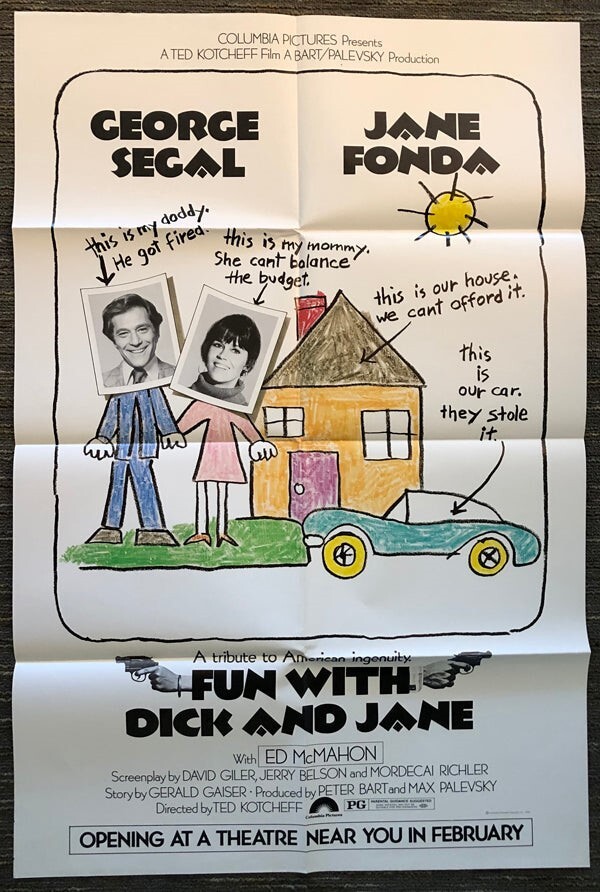 COLUMBIA PICTURES Presents
A TED KOTCHEFF Film A BART/PALEVSKY Production
GEORGE
SEGAL
JANE
FONDA
this is my daddy.
He got fired.
this is my mommy.
She cant balance
the budget.
this is our house.
we cant afford it.
this
is
our car.
they stole
it.
A tribute to American ingenuity.
FUN WITH
DICK AND JANE
With ED McMAHON
Screenplay by DAVID GILER, JERRY BELSON and MORDECAI RICHLER
Story by GERALD GAISER · Produced by PETER BART and MAX PALEVSKY
Directed by TED KOTCHEFF
Columbia Pictures
PG
PARENTAL GUIDANCE SUGGESTED
OPENING AT A THEATRE NEAR YOU IN FEBRUARY